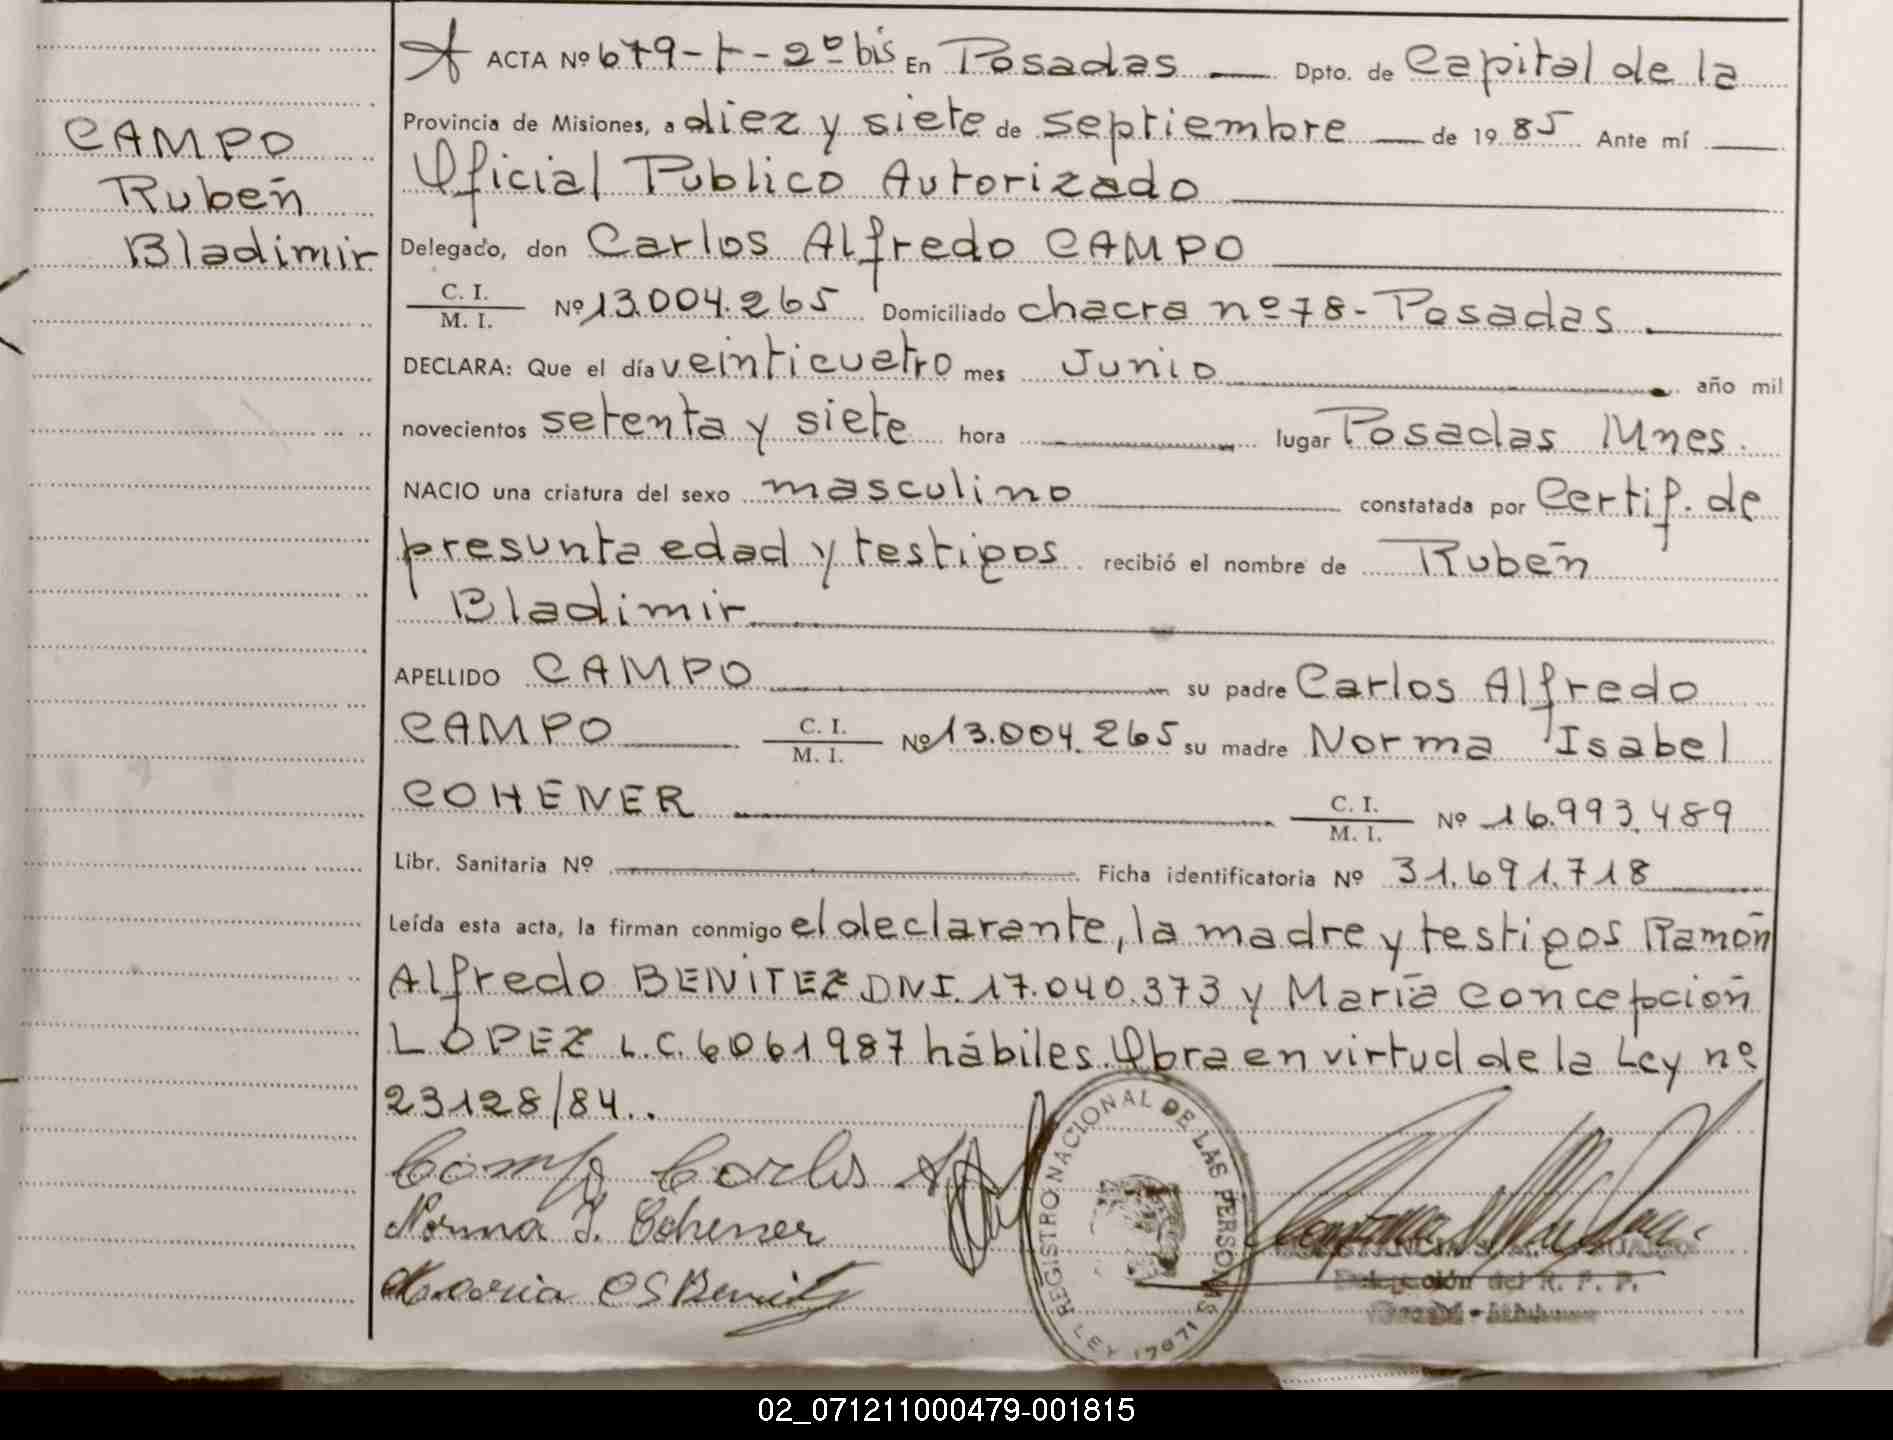 CAMPO
Rubén
Bladimir
ACTA Nº 679-t-2º bis En Posadas Dpto. de Capital de la
Provincia de Misiones, a diez y siete de septiembre de 1985 Ante mí
Oficial Publico Autorizado
Delegado, don Carlos Alfredo CAMPO
C. I.
M. I. Nº 13.004.265 Domiciliado chacra nº 78 - Posadas.
DECLARA: Que el día veinticuatro mes Junio año mil
novecientos setenta y siete hora lugar Posadas Mnes.
NACIO una criatura del sexo masculino constatada por Certif. de
presunta edad y testigos recibió el nombre de Rubén
Bladimir
APELLIDO CAMPO su padre Carlos Alfredo
CAMPO C. I. M. I. Nº 13.004.265 su madre Norma Isabel
COHENER C. I. M. I. Nº 16.993.489
Libr. Sanitaria Nº Ficha identificatoria Nº 31.691.718
Leída esta acta, la firman conmigo el declarante, la madre y testigos Ramón
Alfredo BENITEZ DNI. 17.040.373 y María Concepción
LOPEZ L.C. 6061987 hábiles. Obra en virtud de la Ley nº
23128/84..
Campo Carlos A
Norma I. Cohener
Maria C S Benitz
REGISTRO NACIONAL DE LAS PERSONAS
LEY 17671
Delegación del R. P. P.
02_071211000479-001815